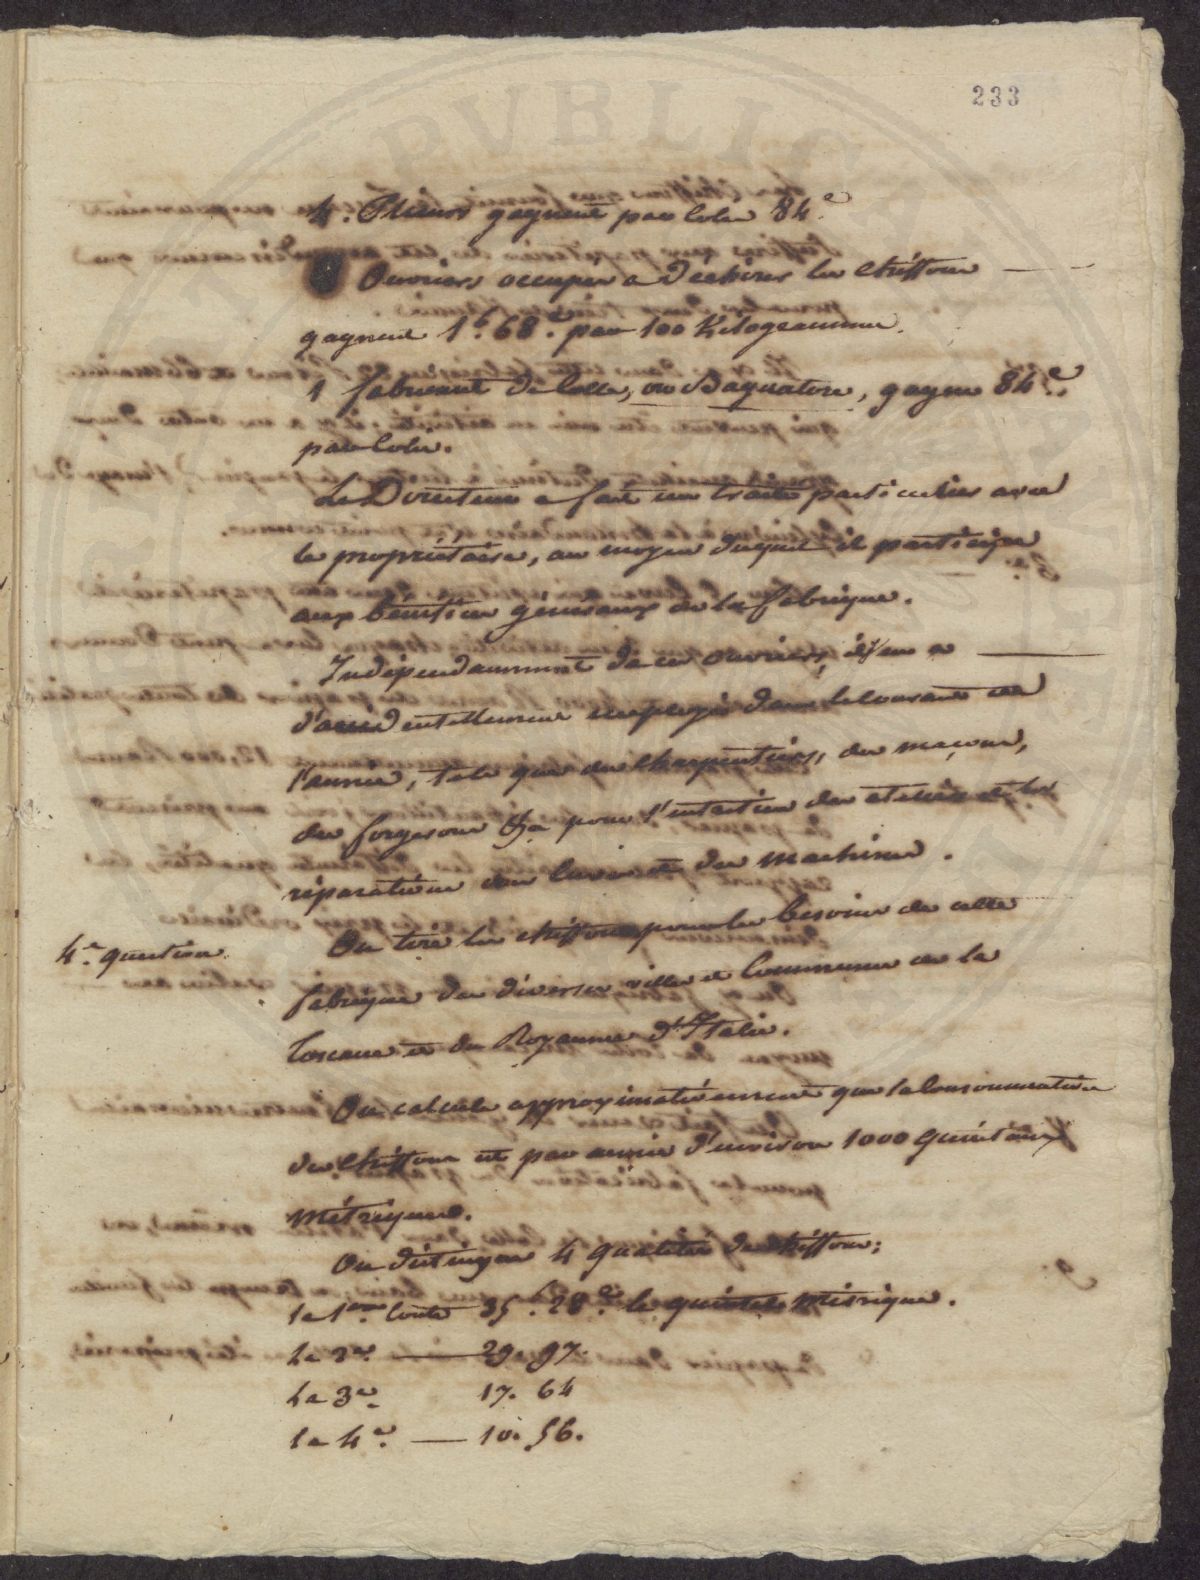 233
4. Plieurs gagnent par colo 84.c
Ouvriers occupés a dechirer les chiffons
gagnent 1.f 68.c par 100 Kilogrammes.
1 fabricant de Colle, ou Saquatore, gagne 84.c
par colo.
Le Directeur a fait un traité particulier avec
le propriétaire, au moyen duquel il participe
aux bénéfices generaux de la fabrique.
Indépendamment de ces ouvriers, il y en a
d'accidentellement employés dans le courant de
l'année, tels que des Charpentiers, des maçons,
des forgerons &a pour l'entretien des ateliers et les
réparations des et des machines.
4.e question
On tire les chiffons pour les besoins de cette
fabrique des diverses villes et Communes de la
Toscane et du Royaume d'Italie.
On calcule approximativement que la Consommation
des Chiffons est par année d'environ 1000 Quintaux
métriques.
On distingue 4 qualités de chiffons;
la 1.ere Coute 35.f 28.c le quintal métrique.
la 2.e — 29. 97.
La 3.e 17. 64
la 4.e — 10. 56.